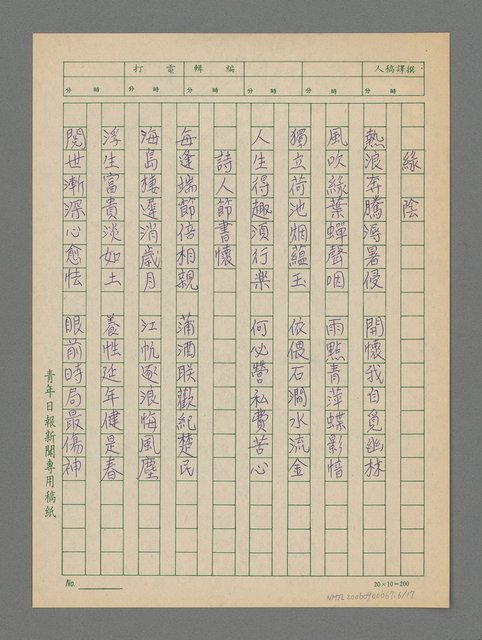 撰譯稿人
編輯
電打
時 分
時 分
時 分
時 分
時 分
時 分
綠 陰
熱浪奔騰溽暑侵 開懷我自覓幽林
風吹綠葉蟬聲咽 雨點青萍蝶影愔
獨立荷池烟蘊玉 依偎石澗水流金
人生得趣須行樂 何必營私費苦心
詩人節書懷
每逢端節倍相親 蒲酒聯歡紀楚民
海島棲遲消歲月 江帆逐浪悔風塵
浮生富貴淡如土 養性延年健是春
閱世漸深心愈怯 眼前時局最傷神
青年日報新聞專用稿紙
No.
20×10=200
NMTL20060400067.6/17